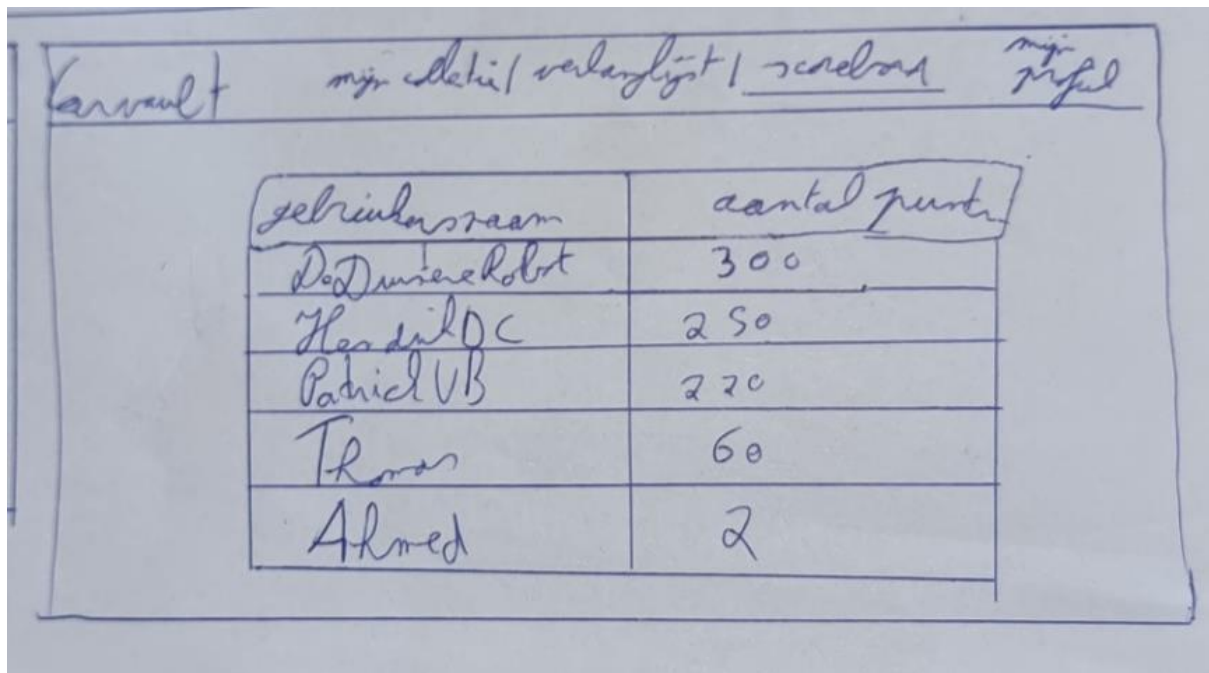 Carvault mijn collectie / verlanglijst / scorebord mijn profiel
gebruikersnaam aantal punten
DeDuivene Robot 300
HendrikDC 250
PatrickVB 220
Thomas 60
Ahmed 2